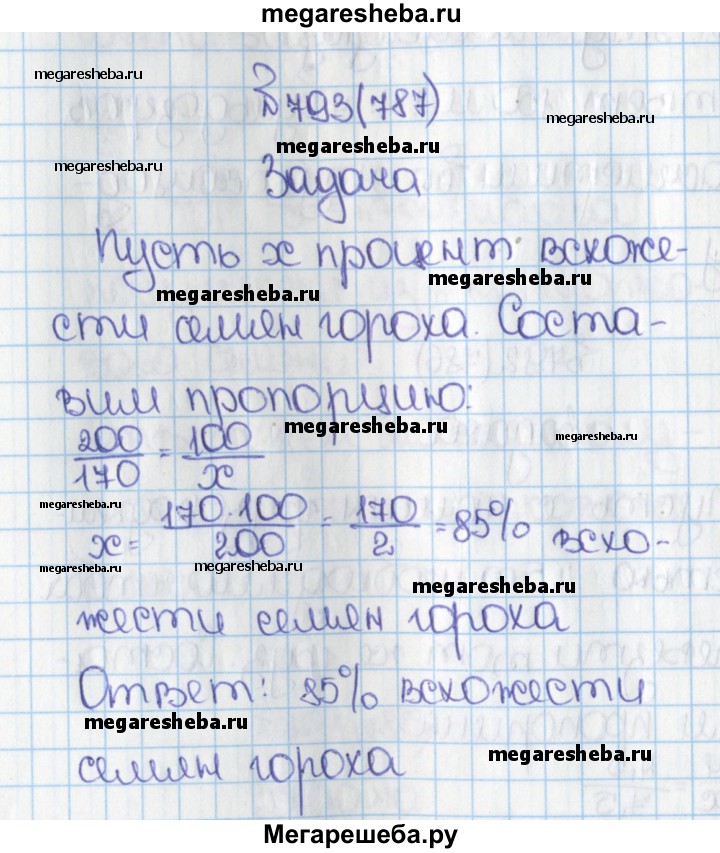 megaresheba.ru
megaresheba.ru
№793(787)
megaresheba.ru
megaresheba.ru
megaresheba.ru
Задача
Пусть x процент всхоже-
megaresheba.ru
megaresheba.ru
сти семян гороха. Соста-
вим пропорцию:
megaresheba.ru
megaresheba.ru
200/170 = 100/x
megaresheba.ru
megaresheba.ru
x = 170·100/200 = 170/2 = 85% всхо-
megaresheba.ru
megaresheba.ru
megaresheba.ru
жести семян гороха
Ответ: 85% всхожести
megaresheba.ru
megaresheba.ru
семян гороха
Мегарешеба.ру